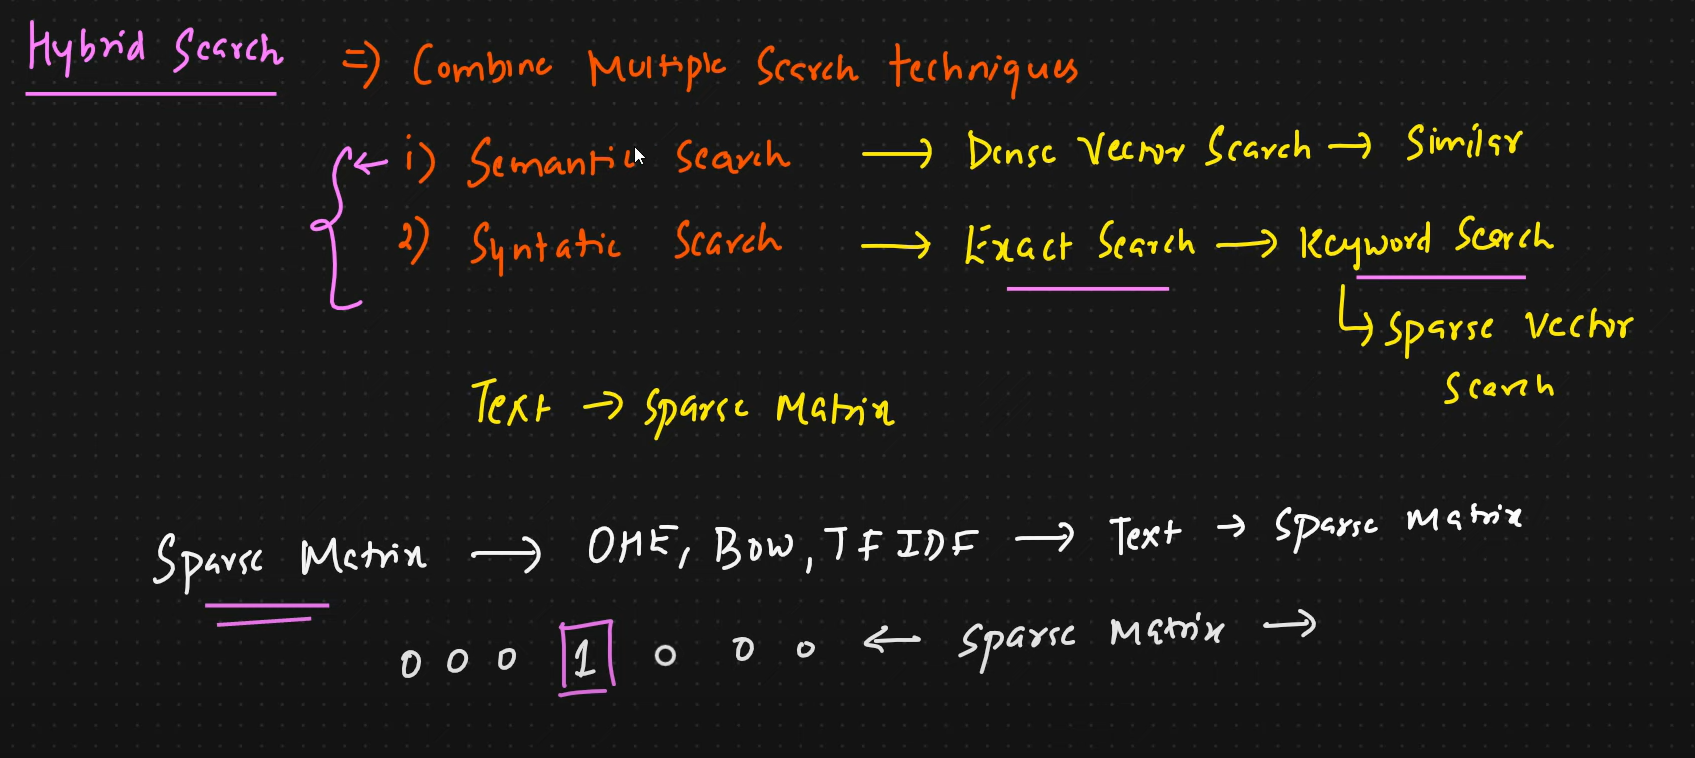 Hybrid Search => Combine Multiple Search techniques
1) Semantic Search → Dense Vector Search → Similar
2) Syntatic Search → Exact Search → Keyword Search
↳ Sparse Vector
Search
Text → Sparse Matrix
Sparse Matrix → OHE, BOW, TF IDF → Text → Sparse Matrix
0 0 0 1 0 0 0 ← Sparse Matrix →